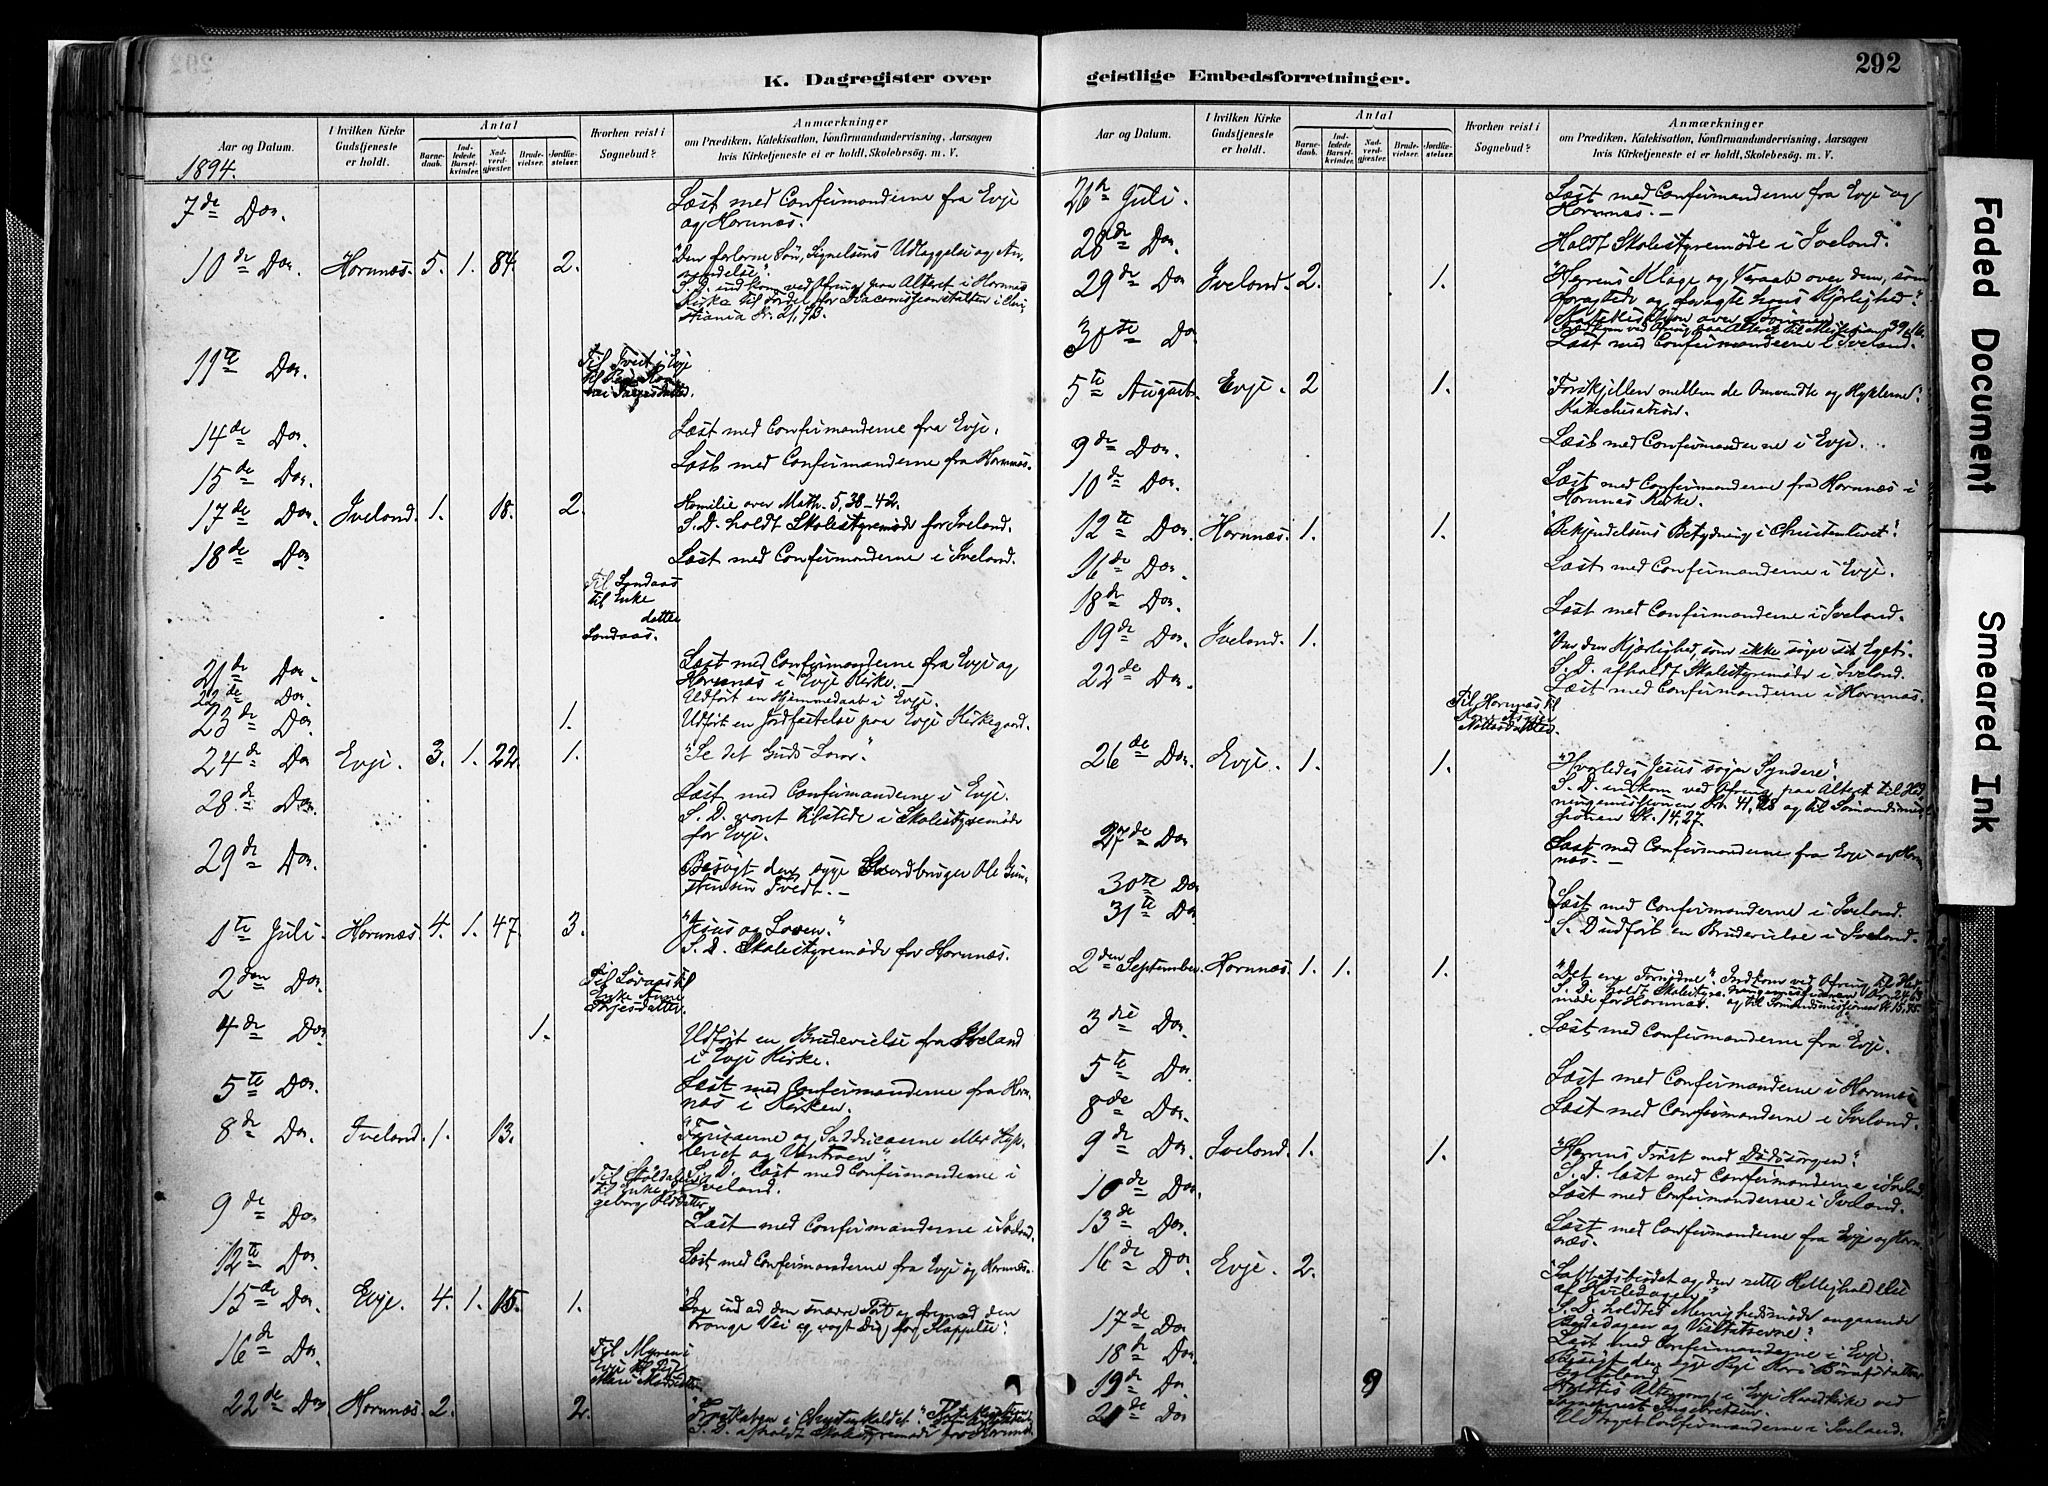 292
K. Dagregister over
geistlige Embedsforretninger.
Aar og Datum.
I hvilken Kirke
Gudstjeneste
er holdt.
Antal
Barne-
daab.
Ind-
ledede
Barsel-
kvinder.
Nad-
verd-
gjæster.
Brude-
vielser.
Jordfæ-
stelser.
Hvorhen reist i
Sognebud?
Anmærkninger
om Prædiken, Katekisation, Konfirmandundervisning, Aarsagen
hvis Kirketjeneste ei er holdt, Skolebesøg. m. V.
1894.
7de Do. Læst med Confirmanderne fra Evje
og Hornnæs.
10de Do. Hornnæs. 5. 1. 84. 2. "Den forlorne Søn, Lignelsens Udlæggelse og An-
vendelse".
S. D. indkom ved Ofring paa Alteret i Hornnæs
Kirke til Fordel for Diaconissjeanstalten i Chri-
stiania Kr. 21,73.
11te Do. Til Tveit i Evje
14de Do. Læst med Confirmanderne fra Evje.
15de Do. Læst med Confirmanderne fra Hornnæs.
17de Do. Iveland. 1. 18. 2. Homilie over Math. 5, 38-42.
S. D. holdt Skolestyremøde for Iveland.
18de Do. Læst med Confirmanderne i Iveland.
Til Londaas
til Enke
datter
Londaas.
21de Do. Læst med Confirmanderne fra Evje og
Hornnæs i Evje Kirke.
22de Do. Udført en Hjemmedaab i Evje.
23de Do. 1. Udført en Jordfæstelse paa Evje Kirkegaard.
24de Do. Evje. 3. 1. 22. 1. "Se det Guds Lam."
28de Do. Læst med Confirmanderne i Evje.
S. D. været tilstede i Skolestyremøde
for Evje.
29de Do. Besøgt den syge Gaardbruger Ole Gun-
stensen Tvedt.
1te Juli. Hornnæs. 4. 1. 47. 3. "Jesus og Loven."
S. D. Skolestyremøde for Hornnæs.
2den Do. Til Løvaas til
Enke Anne
Torjesdatter.
4de Do. 1. Udført en Brudevielse fra Iveland
i Evje Kirke.
5te Do. Læst med Confirmanderne fra Horn-
næs i Kirken.
8de Do. Iveland. 1. 13. "Farisæerne og Sadducæerne eller Hyk-
leriet og Vantroen."
S. D. Læst med Confirmanderne i
Iveland.
9de Do. Læst med Confirmanderne i Iveland.
12te Do. Læst med Confirmanderne fra Evje og Hornnæs.
15de Do. Evje. 4. 1. 15. 1. "Gaa ind ad den snævre Port og fremad den
trange Vei og vogt Dig for Slappelse".
16de Do. Til Myren i
Evje til Pige
22de Do. Hornnæs. 2. 2.
S. D. afholdt Skolestyremøde for Hornnæs.
Aar og Datum.
I hvilken Kirke
Gudstjeneste
er holdt.
Antal
Barne-
daab.
Ind-
ledede
Barsel-
kvinder.
Nad-
verd-
gjæster.
Brude-
vielser.
Jordfæ-
stelser.
Hvorhen reist i
Sognebud?
Anmærkninger
om Prædiken, Katekisation, Konfirmandundervisning, Aarsagen
hvis Kirketjeneste ei er holdt, Skolebesøg. m. V.
26de Juli. Læst med Confirmanderne fra Evje og
Hornnæs.
28de Do. Holdt Skolestyremøde i Iveland.
29de Do Iveland. 2. 1. "Herrens Klage og Veraab over dem, som
foragtede og foragte hans Kjærlighed."
30te Do. Læst med Confirmanderne i Iveland.
5te August. Evje. 2 1. "Forskjellen mellem de Omvendte og Hyklerne."
Katechisation.
9de Do. Læst med Confirmanderne i Evje.
10de Do. Læst med Confirmanderne fra Hornnæs i
Hornnæs Kirke.
12te Do. Hornnæs. 1. 1. "Bekjendelsens Betydning i Christenlivet."
16de Do. Læst med Confirmanderne i Evje.
18de Do. Læst med Confirmanderne i Iveland.
19de Do. Iveland. 1. "Om den Kjærlighed, som ikke søger sit Eget".
S. D. afholdt Skolestyremøde i Iveland.
22de Do. Læst med Confirmanderne i Hornnæs.
Til Hornnæs til
26de Do. Evje. 1. 1. "Hvorledes Jesus søger Syndere".
S. D. indkom ved Ofring paa Alteret til Hed-
ningemissionen Kr. 41,28 og til Sømandsmis-
sionen Kr. 14,27.
27de Do Læst med Confirmanderne fra Evje og Horn-
næs.
30te Do
31te Do. Læst med Confirmanderne i Iveland.
S. D udført en Brudevielse i Iveland.
2den September. Hornnæs. 1. 1. 1. "Det ene Fornødne". Indkom ved Ofring til Hed-
S. D. holdt Skolestyre-
møde for Hornnæs. og til Sømandsmissionen Kr 15,35.
3die Do. Læst med Confirmanderne fra Evje.
5te Do. Læst med Confirmanderne i Hornnæs
8de Do. Læst med Confirmanderne i Iveland.
9de Do. Iveland. 1. 1. "Herrens Trøst mod Dødssorgen".
S. D. læst med Confirmanderne i Iveland.
10de Do. Læst med Confirmanderne i Iveland.
13de Do. Læst med Confirmanderne fra Evje og Horn-
næs.
16de Do. Evje. 2. "Sabbatsbudet og den rette Helligholdelse
af Hviledagen."
S. D. holdtes Menighedsmøde angaaende
17de Do Læst med Confirmanderne i Evje.
18de Do. Besøgt den syge Pige
19de Do. 9 Holdtes Altergang i Evje Hovedkirke ved
Sogneprest Ingebretsen.
20de Do Læst med Confirmanderne i Iveland.
Faded Document
Smeared Ink